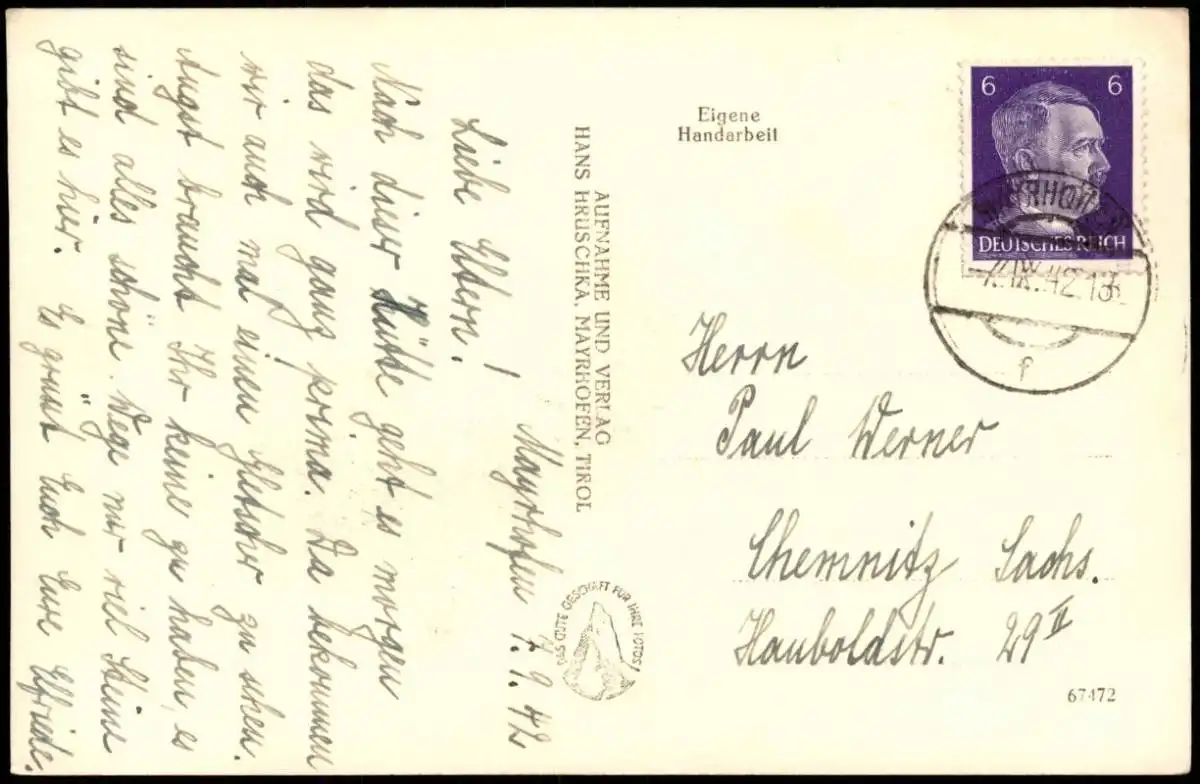 Mayrhofen 7.9.42
Liebe Eltern!
Nach dieser Hütte geht es morgen
das wird ganz prima. Da bekommen
wir auch mal einen Gletscher zu sehen.
Angst braucht Ihr keine zu haben, es
sind alles schöne Wege nur viel Steine
gibt es hier. Es grüsst Euch Eure Elfriede.
AUFNAHME UND VERLAG
HANS HRUSCHKA, MAYRHOFEN, TIROL
DAS GUTE GESCHÄFT FÜR IHRE FOTOS!
Eigene
Handarbeit
6 6
DEUTSCHES REICH
MAYRHOFEN
f
Herrn
Paul Werner
Chemnitz Sachs.
Hauboldstr. 29 II
67472